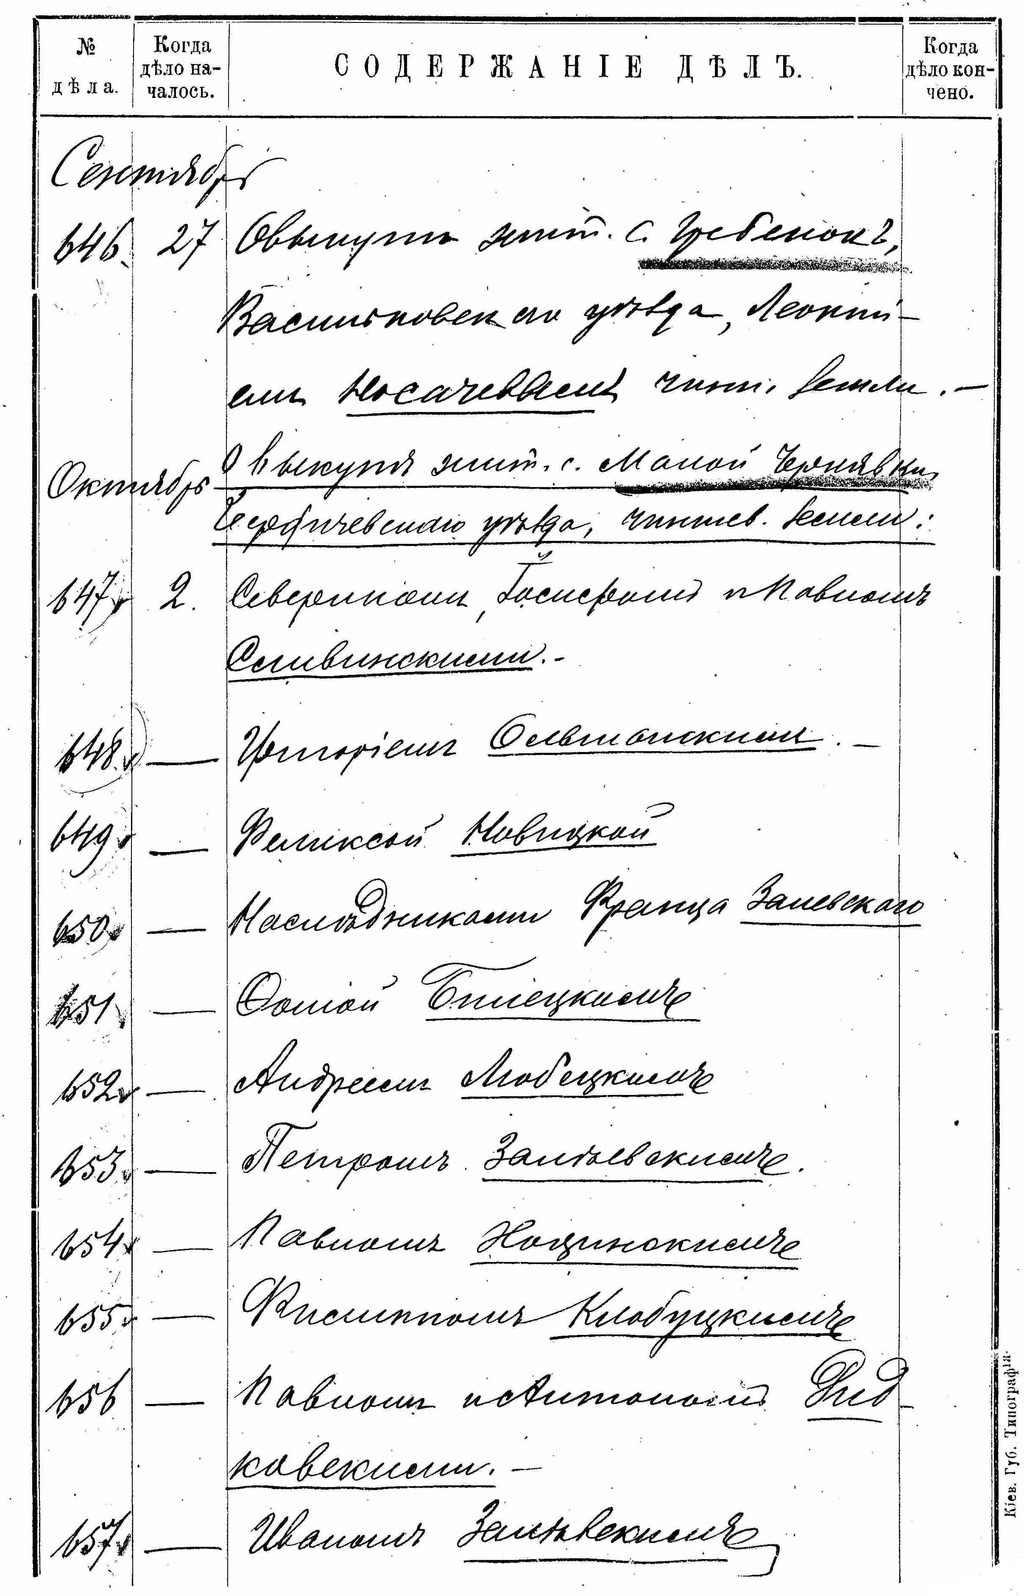 № дѣла.
Когда дѣло началось.
СОДЕРЖАНІЕ ДѢЛЪ.
Когда дѣло кончено.
Сентябрь
646. 27 О выкупѣ жит. с. Гребенокъ,
Васильковскаго уѣзда, Леонті-
емъ Носачевымъ чинш. земли. —
Октябрь О выкупѣ жит. с. Малой Чернявки,
Бердичевскаго уѣзда, чиншев. земли:
647 2. Севериномъ, Іосифомъ и Павломъ
Сливинскими. -
648. — Григоріемъ Ольшанскимъ. —
649 — Феликсой Новицкой
650 — Наслѣдниками Франца Залевскаго
651 — Фомой
652 — Андреемъ Любецкимъ
653 — Петромъ Залѣвскимъ.
654 — Павломъ
655 — Филиппомъ Клобуцкимъ
656 — Павломъ и Антономъ Дид-
ковскими. —
657 — Иваномъ Залѣвскимъ
Кіев. Губ. Типографія.